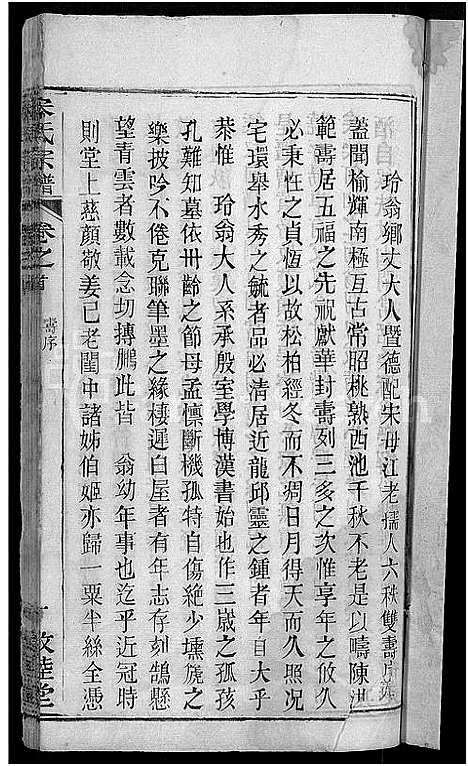 玲翁鄉丈大人暨德配宋母江老孺人六秩雙壽序
蓋聞榆輝南極互古常昭桃熟西池千秋不老是以疇陳洪
範壽居五福之先祝獻華封壽列三多之次惟享年之攸久
必秉性之貞恆以故松柏經冬而不凋日月得天而久照況
宅環舉水秀之毓者品必清居近龍邱靈之鍾者年自大乎
恭惟　玲翁大人系承殷室學博漢書始也作三歲之孤孩
孔難知墓依卅齡之節母孟懍斷機孤特自傷絶少壎篪之
樂披吟不倦克聯筆墨之緣棲遲白屋者有年志存刻鵠懸
望青雲者數載念切摶鵬此皆　翁幼年事也迄乎近冠時
則堂上慈顏敬姜已老閨中諸姊伯姬亦歸一粟半絲全憑
宋氏宗譜　卷之首　壽序　一　敦睦堂